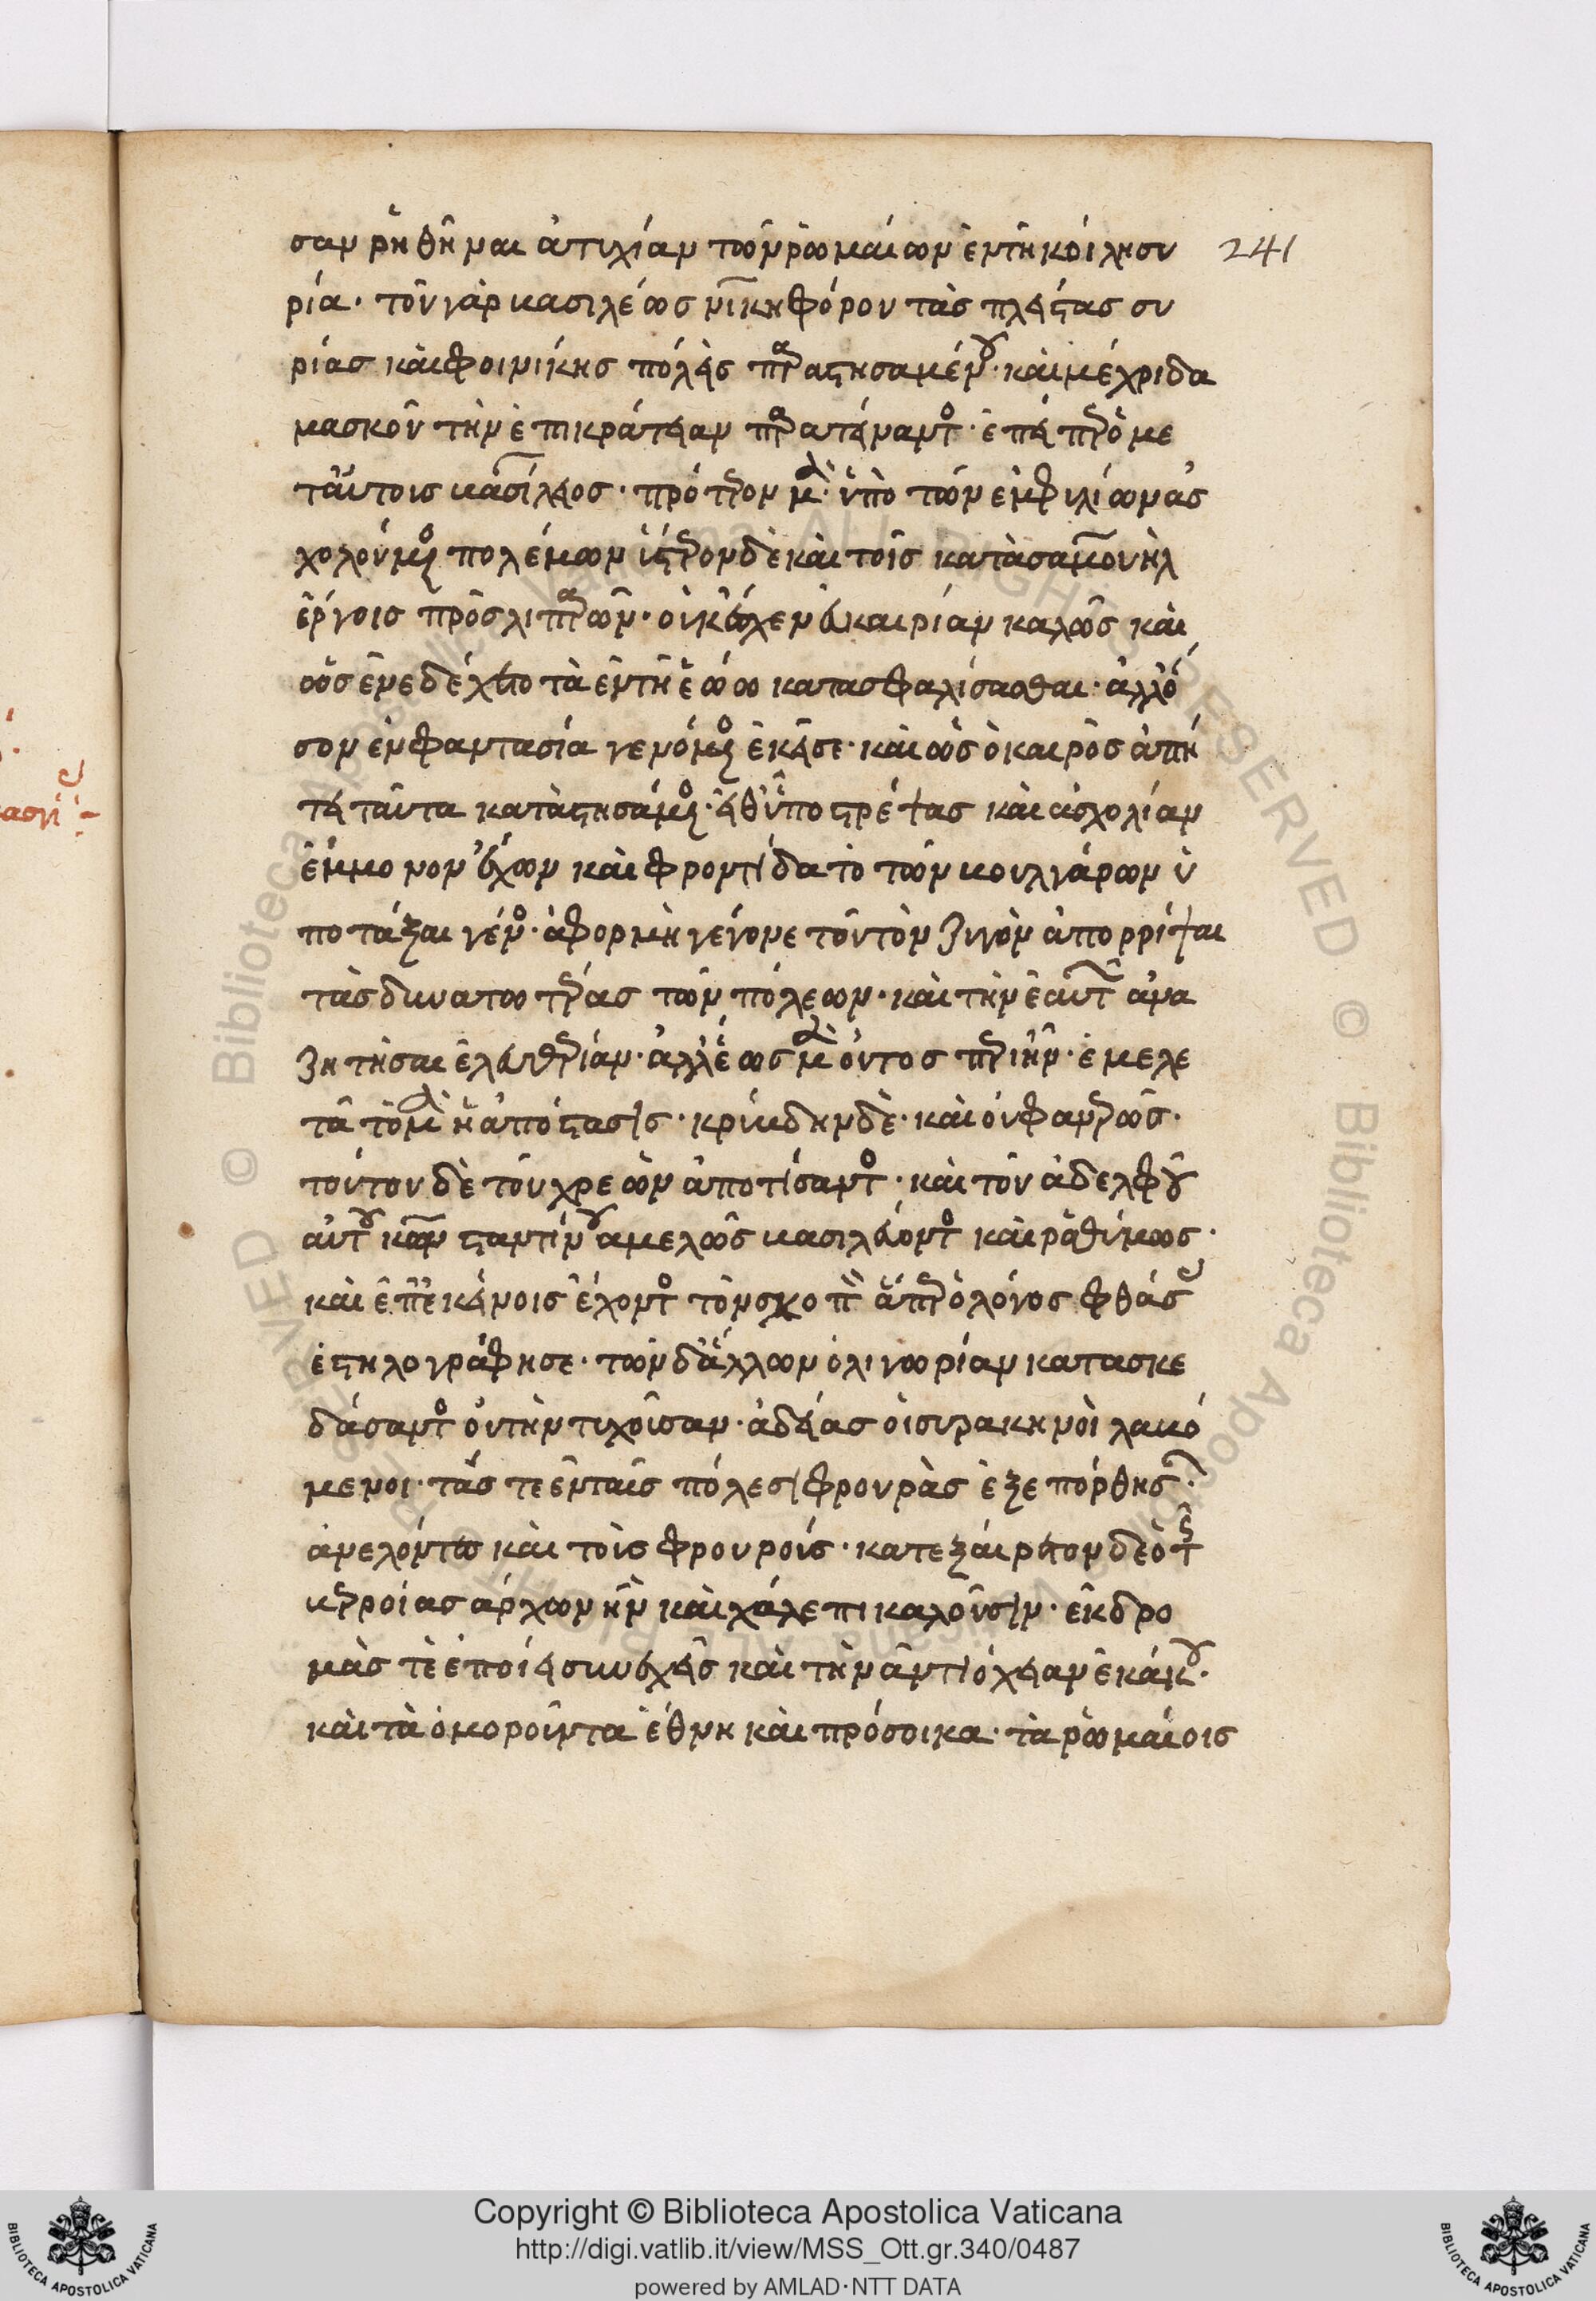 σαν ῥηθῆναι ἀτυχίαν τῶν ῥωμαίων ἐν τῆ κοίλη συ 241
ρία· τοῦ γὰρ βασιλέως νικηφόρου τὰς πλείστας συ
ρίας καὶ φοινίκης πόλεις παραστησαμένου· καὶ μέχρι δα
μασκοῦ τὴν ἐπικράτειαν παρατείναντος· ἐπείπερ ὁ με
τ' αὐτοὺς βασίλειος· πρότερον μὲν ὑπὸ τῶν ἐμφυλίων ἀσ
χολούμενος πολέμων ὕστερον δὲ καὶ τοῖς κατὰ σαμουὴλ
ἔργοις προσλιπαρῶν· οὐκ ἔσχεν εὐκαιρίαν καλῶς καὶ
ὡς ἐνεδέχετο τὰ ἐν τῆ ἑώω κατασφαλίσασθαι· ἀλλ' ὅ
σον ἐν φαντασία γενόμενος ἐκεῖσε· καὶ ὡς ὁ καιρὸς ἀπή
τει ταῦτα καταστησάμενος· εἶθ' ὑποστρέψας καὶ ἀσχολίαν
ἔμμονον ἔχων καὶ φροντίδα τὸ τῶν βουλγάρων ὑ
ποτάξαι γένος· ἀφορμὴ γέγονε τοῦ τὸν ζυγὸν ἀπορρίψαι
τὰς δυνατωτέρας τῶν πόλεων· καὶ τὴν ἑαυτῶν ἀνα
ζητῆσαι ἐλευθερίαν· ἀλλ' ἕως μὲν ὄντος περιῆν· ἐμελε
τᾶτο μὲν ἡ ἀπόστασις· κρύβδην δὲ· καὶ οὐ φανερῶς·
τούτου δὲ τοῦ χρεὼν ἀποτίσαντος· καὶ τοῦ ἀδελφοῦ
αὐτοῦ κωνσταντίνου ἀμελῶς βασιλεύοντος καὶ ῥαθύμως·
καὶ ἐπ' ἐκείνοις ἔχοντος τὸν σκοπὸν ἅπερ ὁ λόγος φθάσας
ἐστηλογράφησε· τῶν δ' ἄλλων ὀλιγωρίαν κατασκε
δάσαντος οὐ τὴν τυχοῦσαν· ἀδείας οἱ συρακηνοὶ λαβό
μενοι· τάς τε ἐν ταῖς πόλεσι φρουρὰς ἐξεπόρθησαν·
ἀνελόντες καὶ τοὺς φρουρούς· κατεξαίρετον δὲ ὁ τῆς
βερροίας ἄρχων ἣν καὶ χάλεπ ικαλοῦσιν· ἐκδρο
μάς τε ἐποίει συνεχεῖς καὶ τὴν ἀντιόχειαν ἐκάκου·
καὶ τὰ ὁμοροῦντα ἔθνη καὶ πρόσοικα· τὰ ῥωμαίοις
Copyright © Biblioteca Apostolica Vaticana
http://digi.vatlib.it/view/MSS_Ott.gr.340/0487
powered by AMLAD·NTT DATA